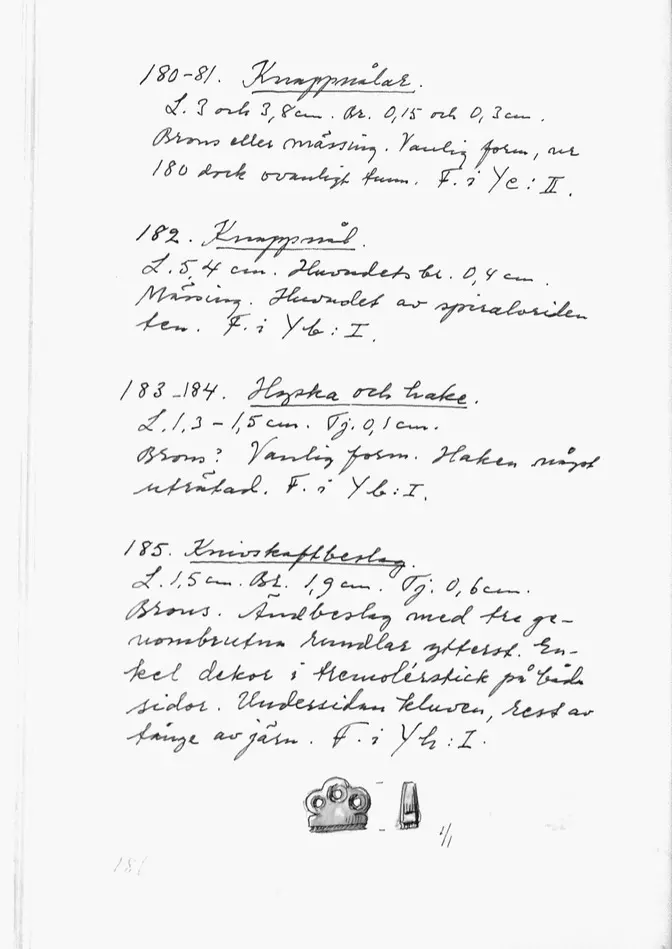 180-81. Knappnålar.
L. 3 och 3,8 cm. Br. 0,15 och 0,3 cm.
Brons eller mässing. Vanlig form, nr
180 dock ovanligt tunn. F. i Yc: II.
182. Knappnål.
L. 5,4 cm. Huvudets br. 0,4 cm.
Mässing. Huvudet av spiralvriden
ten. F. i Yb: I.
183-184. Hyska och hake.
L. 1,3 - 1,5 cm. Tj. 0,1 cm.
Brons? Vanlig form. Haken något
uträtad. F. i Yb: I.
185. Knivskaftbeslag.
L. 1,5 cm. Br. 1,9 cm. Tj. 0,6 cm.
Brons. Ändbeslag med tre ge-
nombrutna rundlar ytterst. En-
kel dekor i tremolérstick på båda
sidor. Undersidan kluven, rest av
tånge av järn. F. i Yh: I.
1/1
181